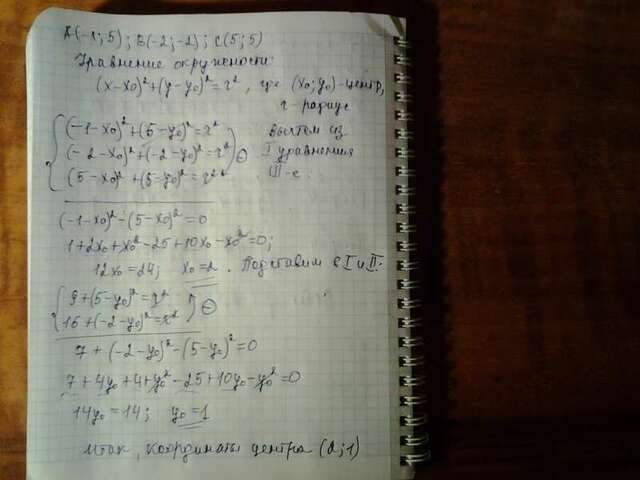 A(-1; 5); B(-2; -2); C(5; 5)
Уравнение окружности:
(x-x₀)²+(y-y₀)²=r², где (x₀; y₀)-центр,
r-радиус
(-1-x₀)²+(5-y₀)²=r² вычтем из
(-2-x₀)²+(-2-y₀)²=r² ⊖ I уравнения
(5-x₀)²+(5-y₀)²=r² III-е.
(-1-x₀)²-(5-x₀)²=0
1+2x₀+x₀²-25+10x₀-x₀²=0;
12x₀=24; x₀=2. Подставим в I и II:
9+(5-y₀)²=r²
16+(-2-y₀)²=r² ⊖
7+(-2-y₀)²-(5-y₀)²=0
7+4y₀+4+y₀²-25+10y₀-y₀²=0
14y₀=14; y₀=1
Итак, координаты центра (2; 1)